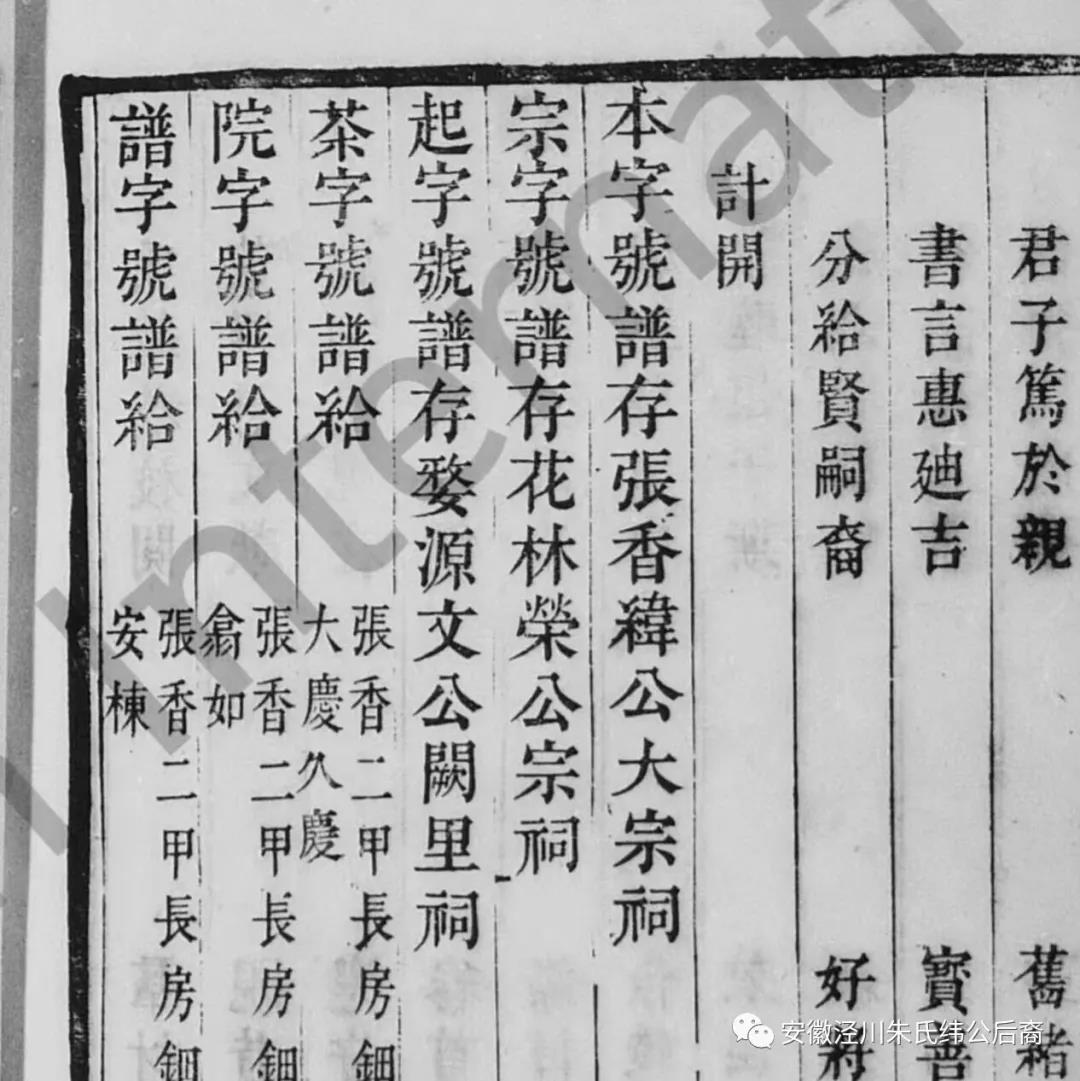 君子篤於親 舊緒
書言惠迪吉 寳善
分給賢嗣裔 好
計開
本字號譜存張香緯公大宗祠
宗字號譜存花林榮公宗祠
起字號譜存婺源文公闕里祠
茶字號譜給 張香二甲長房鈿
大慶久慶
院字號譜給 張香二甲長房鈿
翕如
譜字號譜給 張香二甲長房鈿
安棟
Internati
安徽泾川朱氏纬公后裔